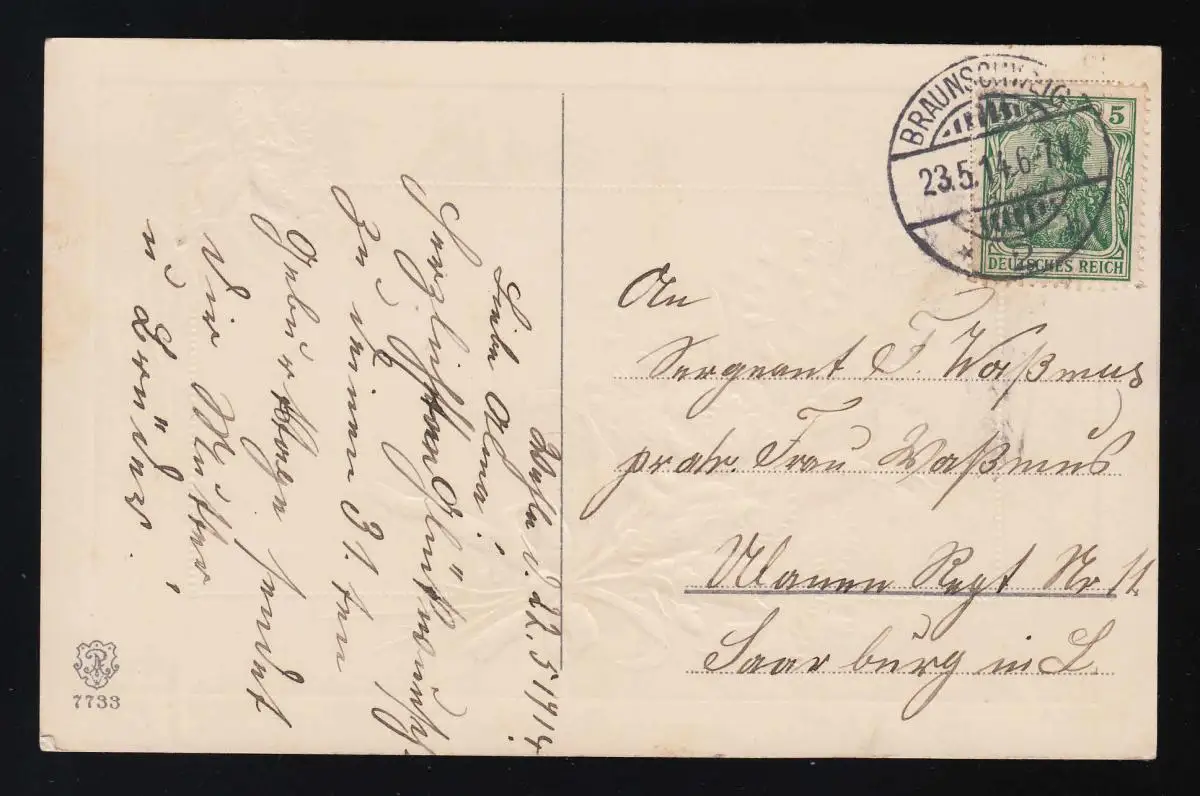 BRAUNSCHWEIG
23.5.14.6-7N
5
DEUTSCHES REICH
An
Sergeant F. Waßmus
pr. adr. Frau Waßmus
Ulanen Regt Nr 11
Saarburg in L.
d. 22.5 1914
Liebe Alma!
Herzlichen Glückwunsch
zu deinen 31. ten
Geburtstage sendet
dir Mutter
u Brüder.
7733